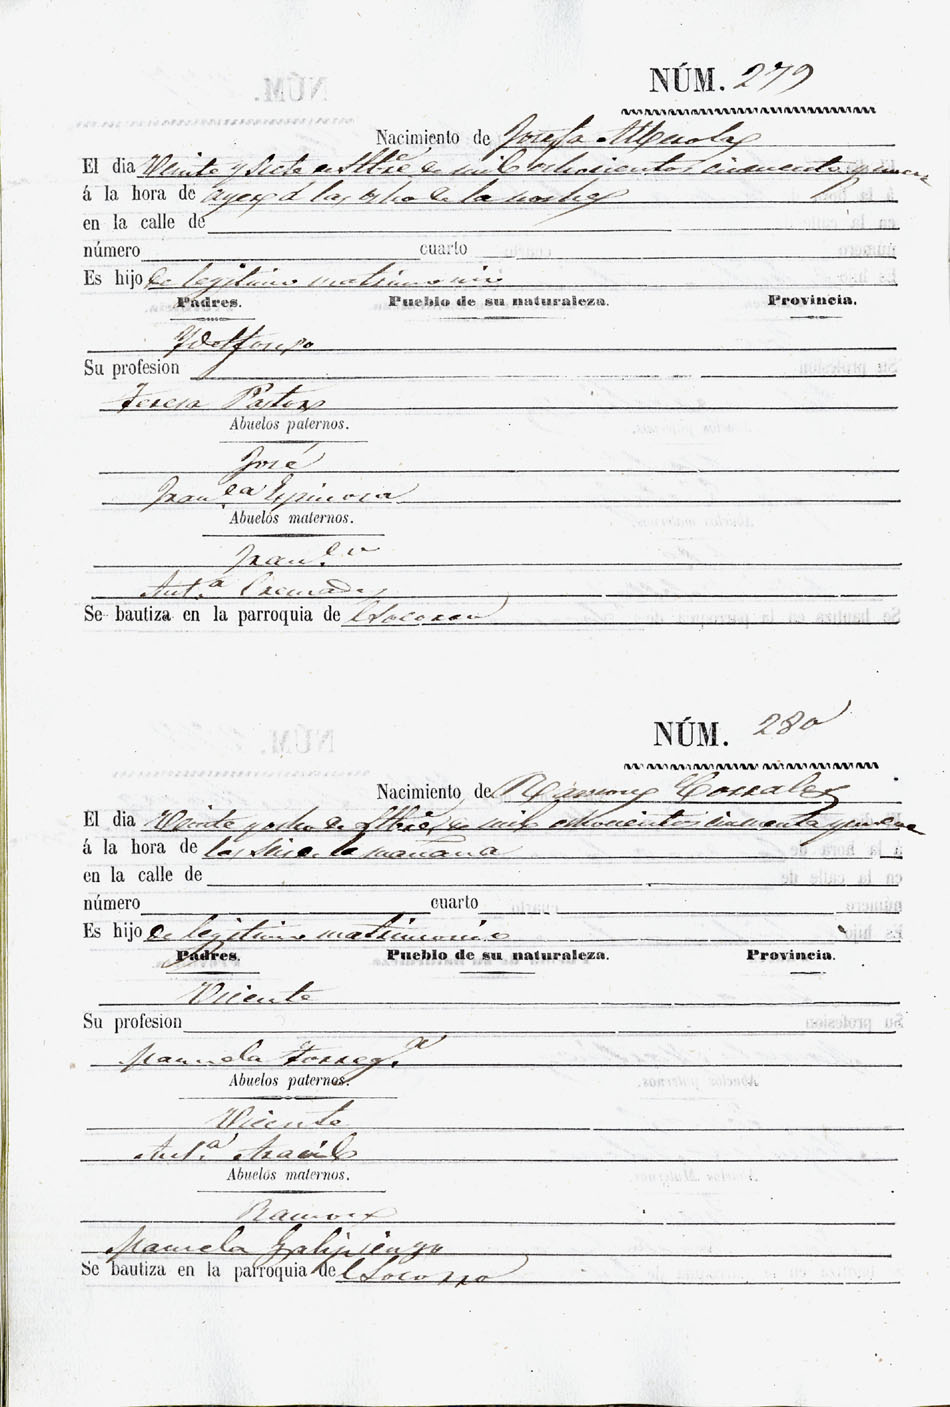 NÚM. 279
Nacimiento de Josefa
El dia Veinte y siete de de mil ochocientos cincuenta y nueve
á la hora de ayer á las ocho de la noche
en la calle de
número cuarto
Es hijo de legitimo matrimonio
Padres. Pueblo de su naturaleza. Provincia.
Ydelfonso
Su profesion
Teresa Pastor
Abuelos paternos.
José
Fran.ca Espinosa
Abuelos maternos.
Fran.co
Ant.a
Se bautiza en la parroquia de el Socorro
NÚM. 280
Nacimiento de Ramon Corrales
El dia Veinte y ocho de de mil ochocientos cincuenta y nueve
á la hora de las de la mañana
en la calle de
número cuarto
Es hijo de legitimo matrimonio
Padres. Pueblo de su naturaleza. Provincia.
Vicente
Su profesion
Manuela
Abuelos paternos.
Vicente
Ant.a Aracil
Abuelos maternos.
Ramon
Manuela Galipienzo
Se bautiza en la parroquia de el Socorro